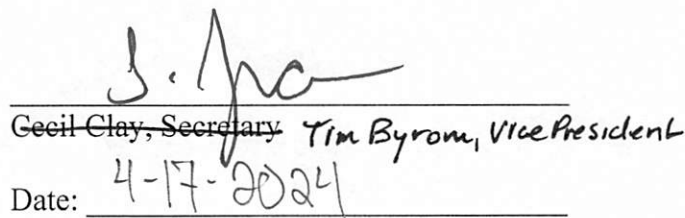 Cecil Clay, Secretary Tim Byrom, Vice President
Date: 4-17-2024